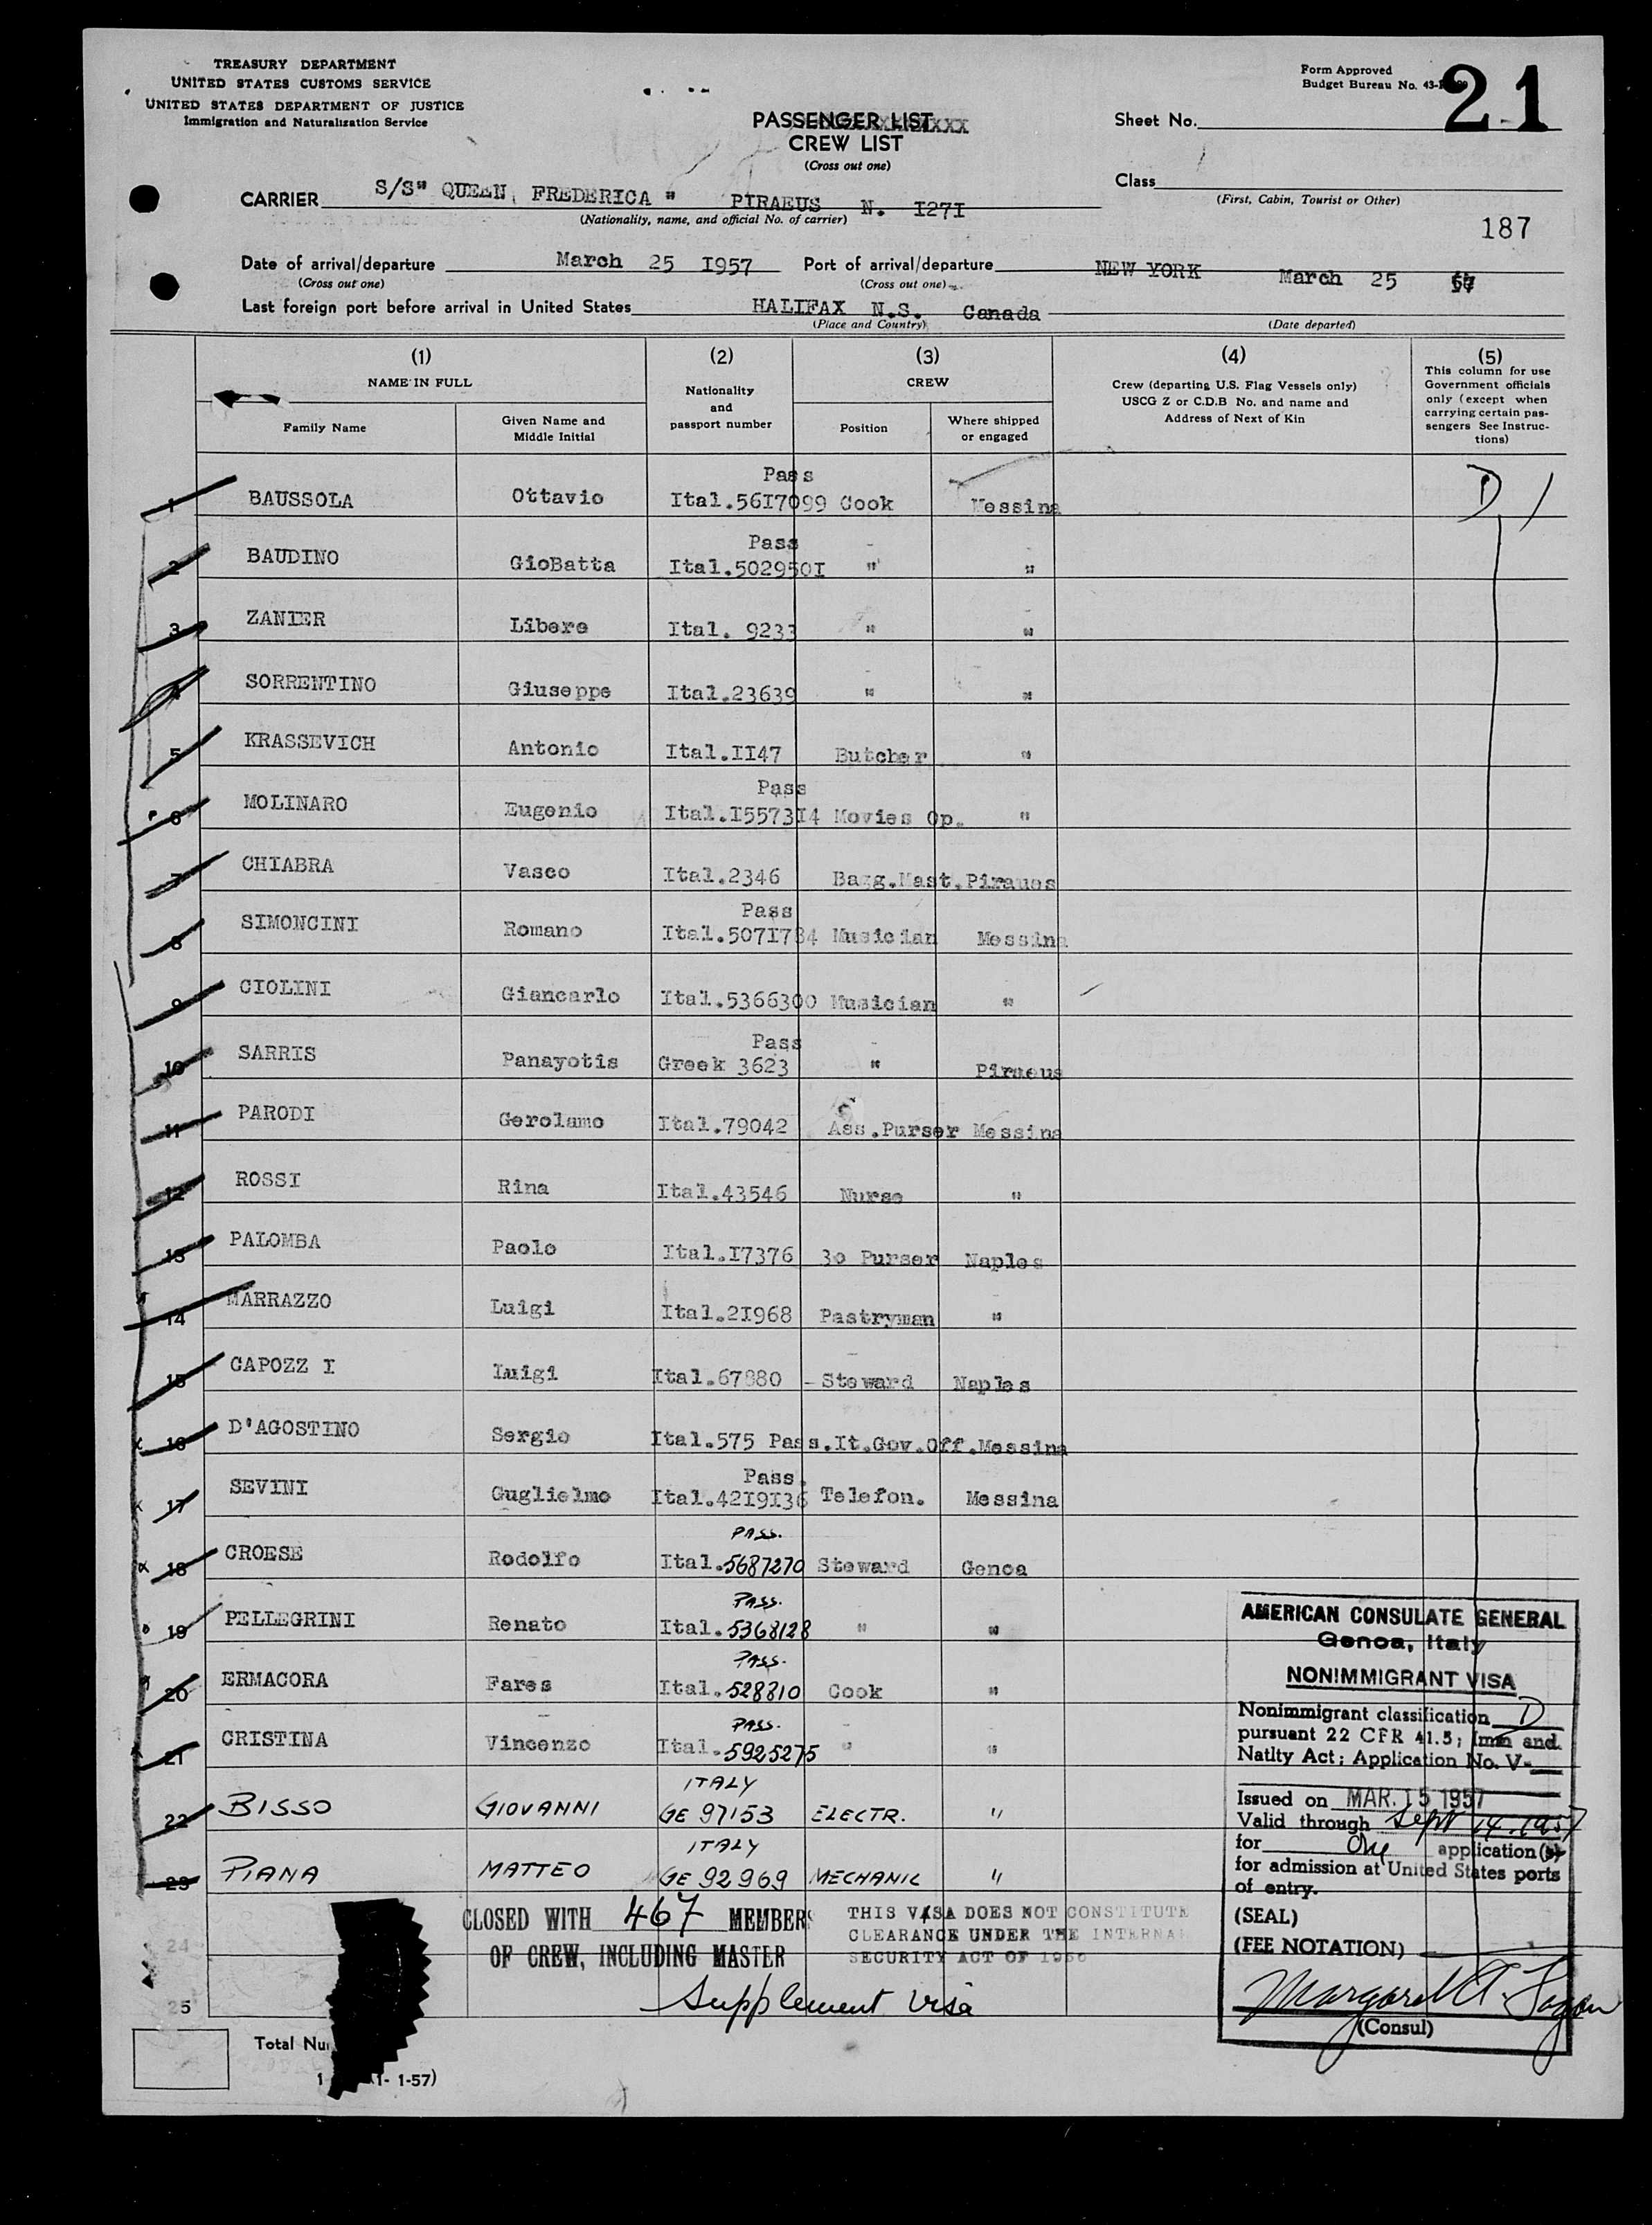 TREASURY DEPARTMENT
UNITED STATES CUSTOMS SERVICE
UNITED STATES DEPARTMENT OF JUSTICE
Immigration and Naturalization Service
Form Approved
Budget Bureau No. 43-
21
PASSENGER LIST
CREW LIST
(Cross out one)
Sheet No.
CARRIER S/S" QUEEN FREDERICA " PIRAEUS N. I27I
(Nationality, name, and official No. of carrier)
Class
(First, Cabin, Tourist or Other)
187
Date of arrival/departure March 25 I957 Port of arrival/departure NEW YORK March 25 57
(Cross out one) (Cross out one)
Last foreign port before arrival in United States HALIFAX N.S. Canada
(Place and Country) (Date departed)
(1) (2) (3) (4) (5)
NAME IN FULL
Nationality and passport number
CREW
Crew (departing U.S. Flag Vessels only)
USCG Z or C.D.B No. and name and
Address of Next of Kin
This column for use
Government officials
only (except when
carrying certain pas-
sengers See Instruc-
tions)
Family Name Given Name and Middle Initial Position Where shipped or engaged
Pass
1 BAUSSOLA Ottavio Ital.56I7099 Cook Messina D 1
Pass
2 BAUDINO GioBatta Ital.502950I " "
3 ZANIER Libero Ital. 9233 " "
4 SORRENTINO Giuseppe Ital.23639 " "
5 KRASSEVICH Antonio Ital.II47 Butcher "
Pass
6 MOLINARO Eugenio Ital.I5573I4 Movies Op. "
7 CHIABRA Vasco Ital.2346 Bagg.Mast.Piraues
Pass
8 SIMONCINI Romano Ital.507I784 Musician Messina
9 CIOLINI Giancarlo Ital.5366300 Musician "
Pass
10 SARRIS Panayotis Greek 3623 " Piraeus
11 PARODI Gerolamo Ital.79042 Ass.Purser Messina
12 ROSSI Rina Ital.43546 Nurse "
13 PALOMBA Paolo Ital.I7376 3o Purser Naples
14 MARRAZZO Luigi Ital.2I968 Pastryman "
15 CAPOZZ I Luigi Ital.67880 -Steward Naples
16 D'AGOSTINO Sergio Ital.575 Pass.It.Gov.Off.Messina
Pass.
17 SEVINI Guglielmo Ital.42I9I36 Telefon. Messina
PASS.
18 CROESE Rodolfo Ital.5687270 Steward Genoa
PASS.
19 PELLEGRINI Renato Ital.5368128 " "
PASS.
20 ERMACORA Fares Ital.528810 Cook "
PASS.
21 CRISTINA Vincenzo Ital.5925275 " "
ITALY
22 BISSO GIOVANNI GE 97153 ELECTR. "
ITALY
23 PIANA MATTEO GE 92969 MECHANIC "
24
25
CLOSED WITH 467 MEMBERS
OF CREW, INCLUDING MASTER
THIS VISA DOES NOT CONSTITUTE
CLEARANCE UNDER THE INTERNAL
SECURITY ACT OF 1950
Supplement Visa
AMERICAN CONSULATE GENERAL
Genoa, Italy
NONIMMIGRANT VISA
Nonimmigrant classification D
pursuant 22 CFR 41.5; Imm and.
Natlty Act; Application No. V-
Issued on MAR. 15 1957
Valid through Sept 14. 1957
for One application(s)
for admission at United States ports
of entry.
(SEAL)
(FEE NOTATION)
(Consul)
Total Nu
1 1- 1-57)